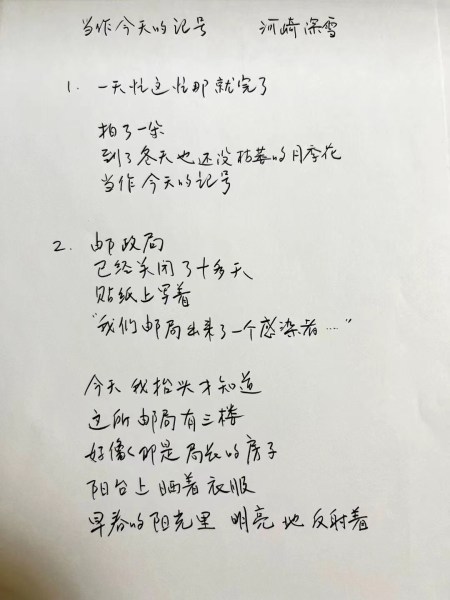 当作今天的记号 河崎深雪
1. 一天忙这忙那就完了
拍了一朵
到了冬天也还没枯萎的月季花
当作今天的记号
2. 邮政局
已经关闭了十多天
贴纸上写着
“我们邮局出来了一个感染者…”
今天我抬头才知道
这所邮局有三楼
好像那是局长的房子
阳台上晒着衣服
早春的阳光里 明亮地反射着